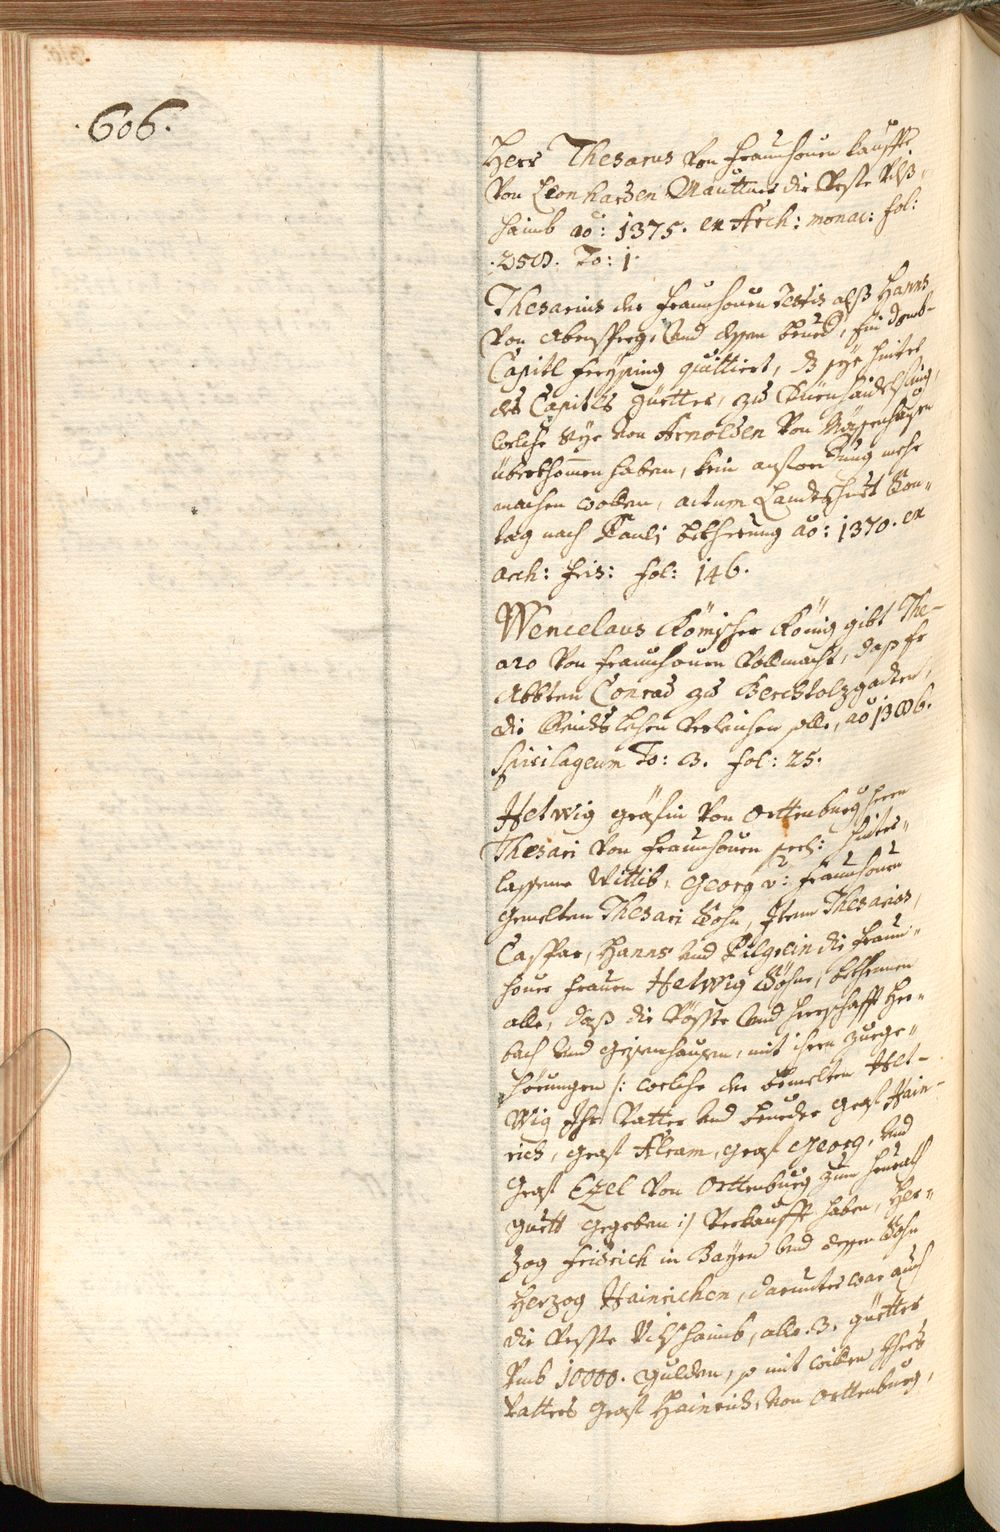 .606.
Herr Thesarus von Fraunhouen kauffte
von Leonharden Mautner die Veste Vilß-
haimb ao: 1375. ex Arch: monac: fol:
To: 1.
Thesarius der Fraunhouen Testis alß Hanns
von Abensperg, und dessen brued, ein Domb-
Capitl Freysing quittiert, dz sye hinter
des Capitls güetter, zu
welche sye von Arnolden von
überkhommen haben, kein anforderung mehr
machen wollen, actum Landtshuet Son-
tag nach Pauli bekherung ao: 1370. ex
Arch: fris: fol: 146.
Wencelaus Römischer König gibt The-
aro von Fraunhouen Vollmacht, daß Er
Abbten Conrad zu Berchtolzgaden,
die Reichs lehen verleihen solle, ao 1386.
Spicilageum To: 3. fol: 25.
Helwig gräfin von Orttenburg herrn
Thesari von Fraunhouen seel: hinter-
lassene Wittib, Georg v: Fraunhouen
gemelten Thesari Sohn, Item Thesarios,
Caspar, Hanns und Pilgrein die Fraun-
houer Frauen Helwig Söhne, bekhennen
alle, daß die Vösste und herrschafft Her-
bach und Geisenhausen, mit ihren zuege-
hörungen /: welche der bemelten Hel-
wig Ihr Vatter und brueder Graf Hain-
rich, Graf Alram, Graf Georg, und
Graf Ezel von Orttenburg zum heurath
guett gegeben :/ verkaufft haben, Her-
zog Fridrich in Bayrn und dessen Sohn
Herzog Hainrichen, darunter war auch
die Vesste Vilshaimb, alle 3. güetter
umb 10000. gulden, so mit willen ihres
Vatters Graf Hainrich, von Orttenburg,